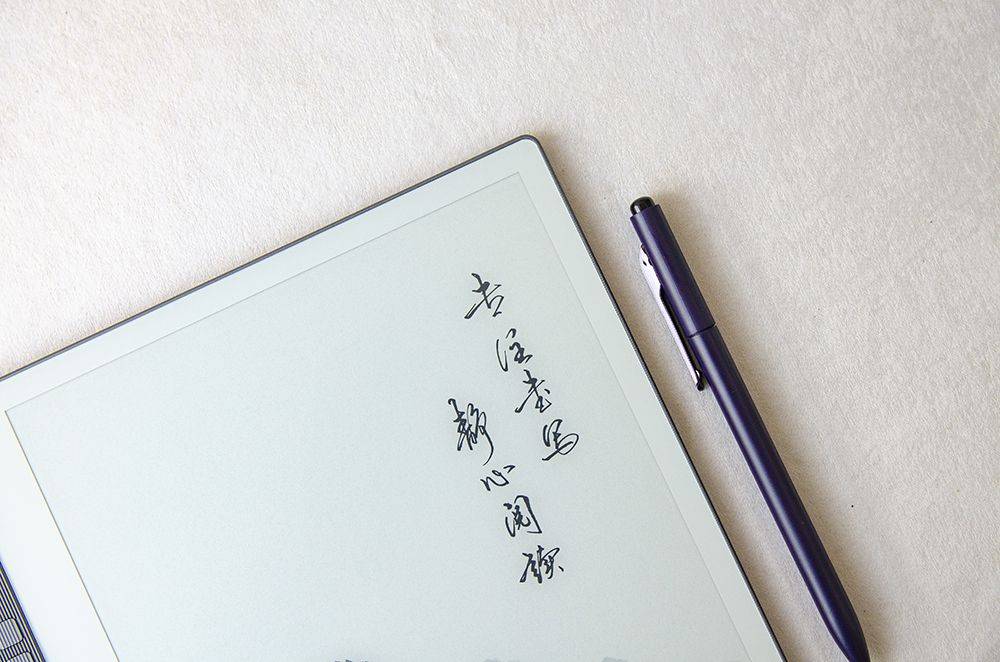 专注书写
静心阅读